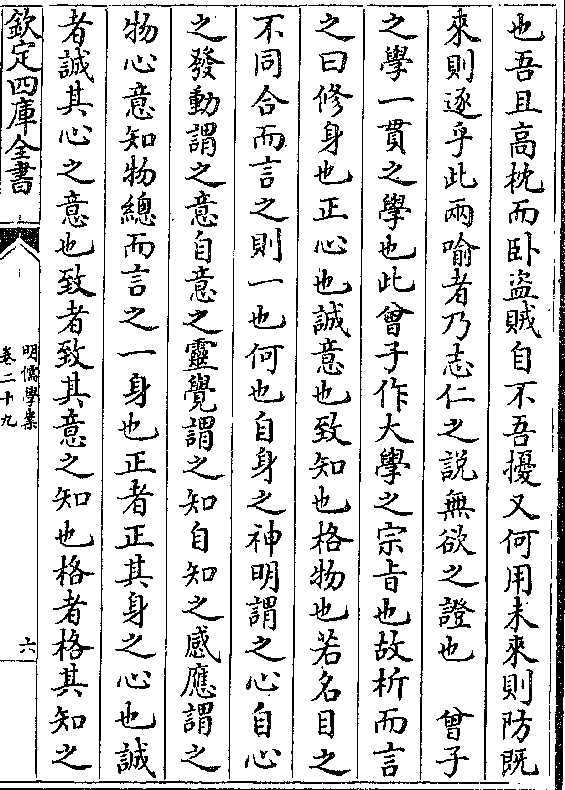 也吾且高枕而卧盜賊自不吾擾又何用未來則防既
來則逐乎此兩喻者乃志仁之說無欲之證也　曾子
之學一貫之學也此曾子作大學之宗旨也故析而言
之曰修身也正心也誠意也致知也格物也若名目之
不同合而言之則一也何也自身之神明謂之心自心
之發動謂之意自意之靈覺謂之知自知之感應謂之
物心意知物總而言之一身也正者正其身之心也誠
者誠其心之意也致者致其意之知也格者格其知之
欽定四庫全書
明儒學案
卷二十九
六